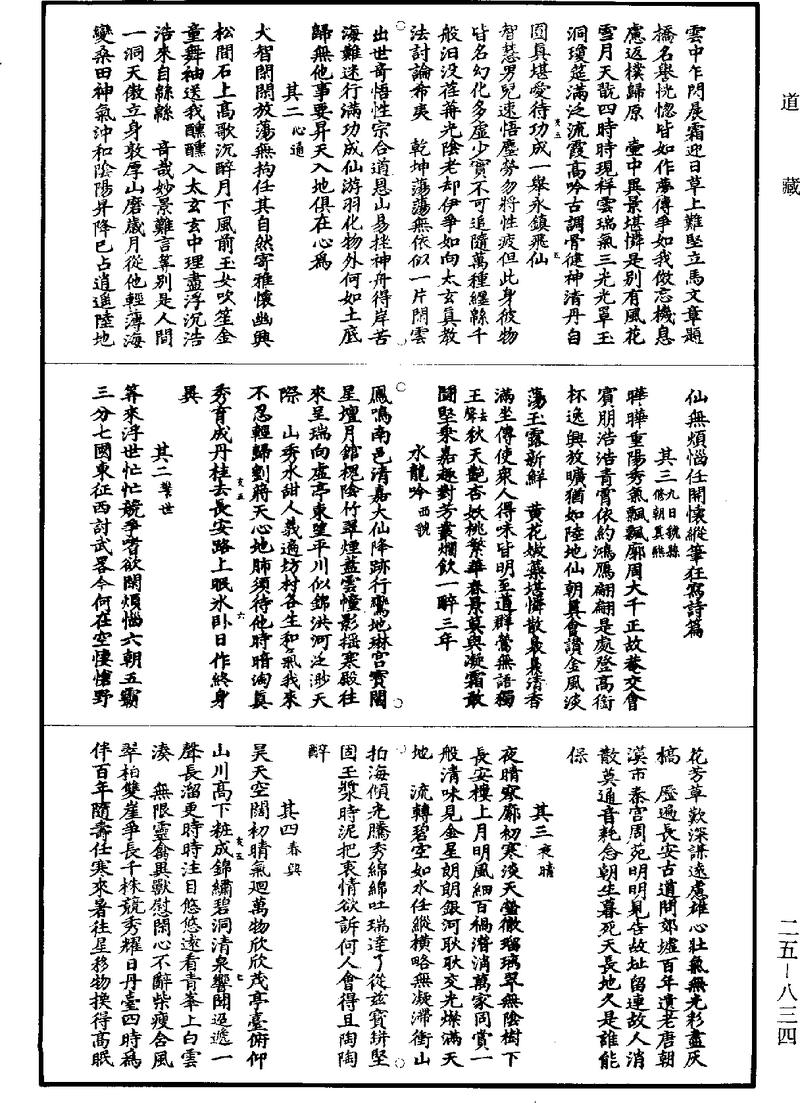 道藏
雲中乍閃晨霜迎日草上難堅立馬文章題
橋名舉恍惚皆如作夢傳爭如我傚忘機息
慮返樸歸原　壼中異景堪憐是別有風花
雪月天𣪚四時時現祥雲瑞氣三光光罩玉
洞瓊筵滿泛流霞高吟古調骨健神清丹自
圓真堪愛待功成一舉永鎮飛仙
智慧男兒速悟塵勞勿將性疲但此身彼物
皆名幻化多虛少實不可追隨萬種縷縣千
般汩没荏苒光陰老却伊爭如向太玄真教
法討論希夷　乾坤蕩蕩無依似一片閑雲
出世竒悟性宗合道恩山易挫神舟得岸苦
海難迷行滿功成仙游羽化物外何如土底
歸無他事要昇天入地俱在心為
其二心通
大智閑閑放蕩無拘任其自然寄雅懷幽興
松間石上高歌沉醉月下風前玉女吹笙金
童舞袖送我醺醺入太玄玄中理盡浮沉浩
浩來自綿綿　竒哉妙景難言筭別是人間
一洞天傲立身敦厚山磨歲月從他輕薄海
變桑田神氣沖和陰陽昇降已占逍遥陸地
仙無煩惱任開懷縱筆狂寫詩篇
其三九日虢縣修朝真醮
曄曄重陽秀氣飄飄廓周大千正故菴交會
賓朋浩浩青霄依約鴻鴈翩翩是處登高銜
杯逸興放曠猶如陸地仙朝真會讚金風淡
蕩玉露新鮮　黄花嫩蘂堪憐散裊裊清香
滿坐傳使衆人得味皆明至道群鶯無語獨
王秋天艷杏妖桃繁華春景莫與凝霜敢
鬪堅衆嘉趣對芳叢爛飲一醉三年
水龍吟西虢
鳳鳴南邑清嘉大仙降跡行鸞地琳宫寶閣
星壇月館槐陰竹翠煙藍雲幢影摇寒殿往
來呈瑞向虛亭東望平川似錦洪河泛渺天
際　山秀水甜人義遍坊村各生和氣我來
不忍輕歸劉蔣天心地肺須待他時暗淘真
秀育成丹桂去長安路上眠水卧日作終身
異
其二警世
筭來浮世忙忙競爭嗜欲閑煩惱六朝五霸
三分七國東征西討武略今何在空悽愴野
花芳草歎深謀遠慮雄心壯氣無光彩盡灰
槁　歷遍長安古道問郊墟百年遺老唐朝
漢市秦宫周苑明明見告故址留連故人消
散莫通音耗念朝生暮死天長地久是誰能
保
其三夜晴
夜晴寥廓初寒淡天瑩徹瑠璃翠無陰樹下
長安樓上月明風細百禍潛消萬家同賞一
般清味見金星朗朗銀河耿耿交光燦滿天
地　流轉碧空如水任縱横略無凝滯衝山
拍海傾光騰秀綿綿吐瑞達了從兹寶缾堅
固玉漿時泥把衷情欲訴何人會得且陶陶
醉
其四春興
昊天空闊初晴氣迴萬物欣欣茂亭臺俯仰
山川高下粧成錦繡碧洞清泉響聞迢遞一
聲長溜更時時注目悠悠遠看青峯上白雲
湊　無限靈禽異獸慰閑心不辭柴瘦含風
翠柏雙崖爭長千株競秀耀日丹臺四時為
伴百年隨壽任寒來暑往星移物換得高眠
二五—八三四